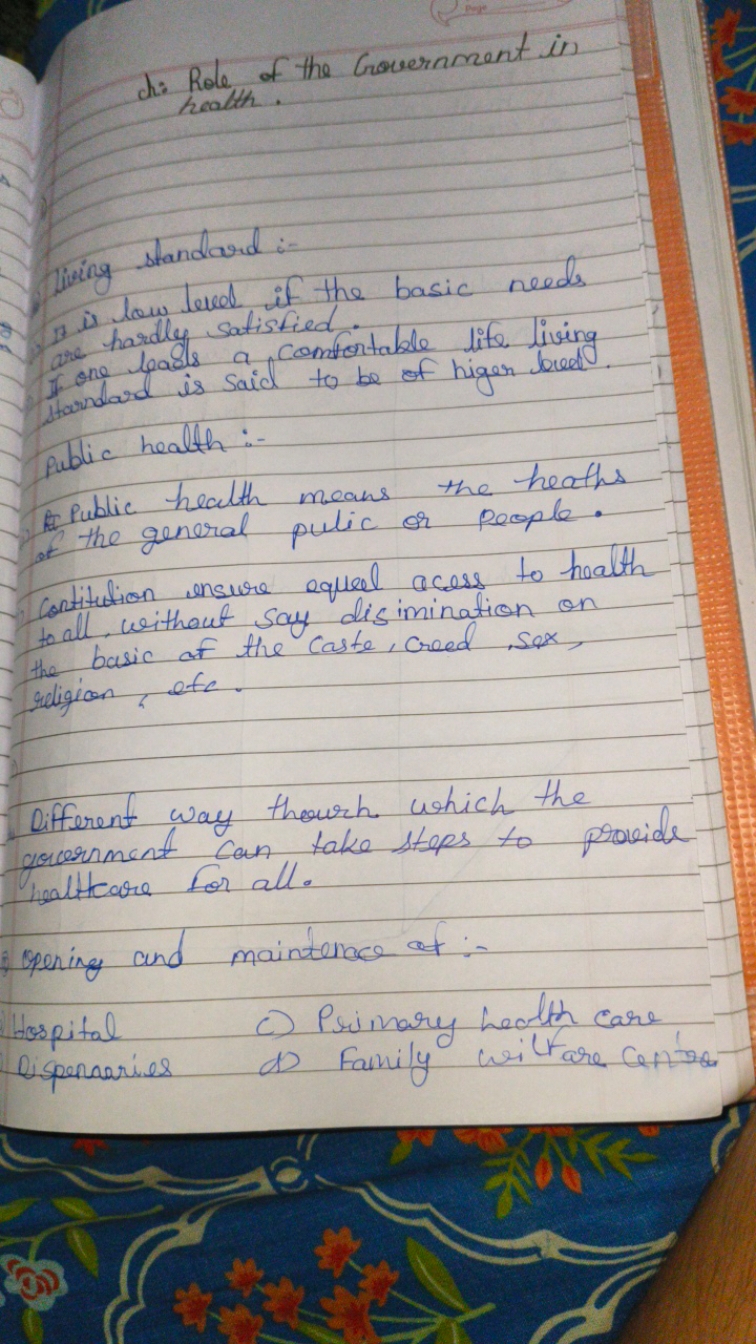 Page
ch: Role of the Government in
health.
Living standard :-
It is low leved if the basic needs
are hardly satisfied.
If one leads a comfortable life living
standard is said to be of higer leved.
Public health :-
Public health means the heaths
of the general pulic or People.
Contitution ensure equeal acess to health
to all, without say disimination on
the basic of the caste, creed, sex,
religion, etc.
Different way thourh which the
government can take steps to provide
healthcare for all.
opening and maintenace of :-
Hospital c) Primary health care
Dispensaries d) Family wilfare centre